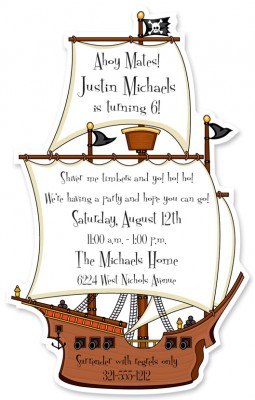 Ahoy Mates!
Justin Michaels
is turning 6!
Shiver me timbers and yo! ho! ho!
We're having a party and hope you can go!
Saturday, August 12th
11:00 a.m. - 1:00 p.m.
The Michaels Home
6224 West Nichols Avenue
Surrender with regrets only
321-555-1212